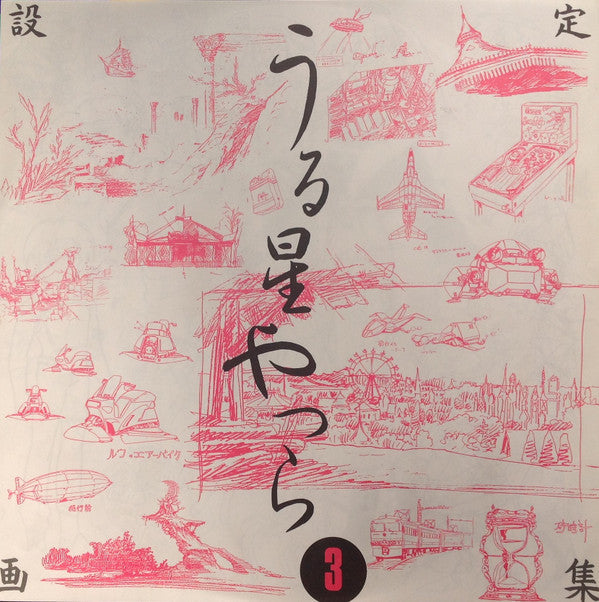 設定
うる星やつら
画集
3
ルコのエアーバイク
飛行船
砂時計